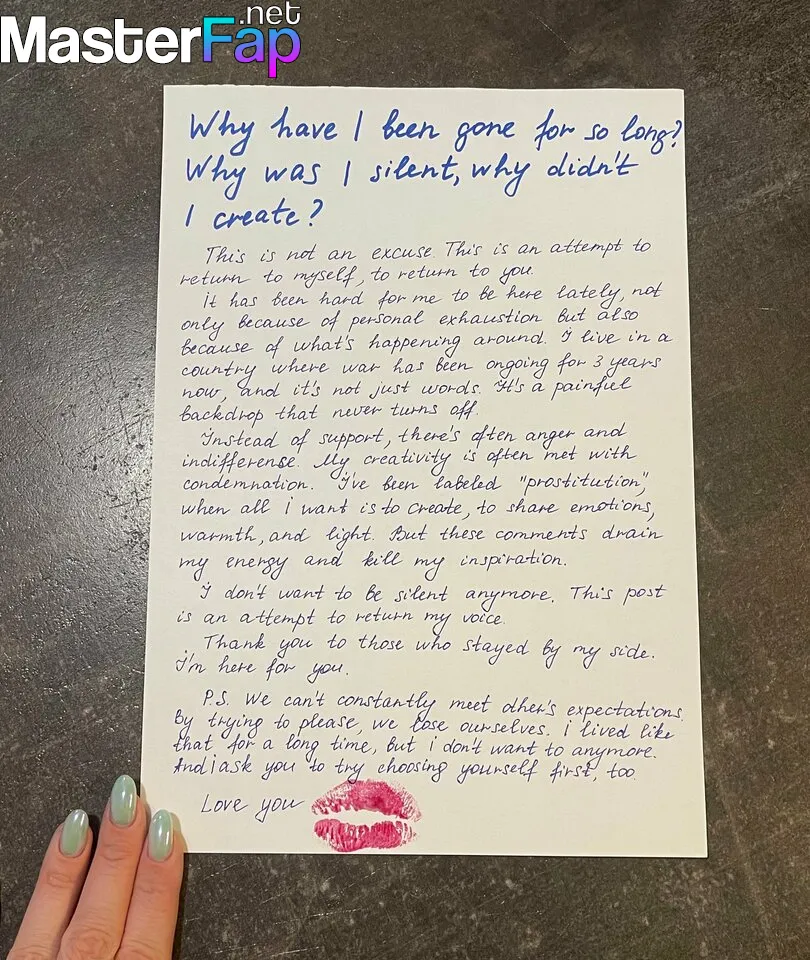 MasterFap.net
Why have I been gone for so long?
Why was I silent, why didn't
I create?
This is not an excuse. This is an attempt to
return to myself, to return to you.
It has been hard for me to be here lately, not
only because of personal exhaustion but also
because of what's happening around. I live in a
country where war has been ongoing for 3 years
now, and it's not just words. It's a painful
backdrop that never turns off.
Instead of support, there's often anger and
indifferense. My creativity is often met with
condemnation. I've been labeled "prostitution",
when all i want is to create, to share emotions,
warmth, and light. But these comments drain
my energy and kill my inspiration.
I don't want to be silent anymore. This post
is an attempt to return my voice.
Thank you to those who stayed by my side.
I'm here for you.
P.S. We can't constantly meet other's expectations.
By trying to please, we lose ourselves. i lived like
that for a long time, but i don't want to anymore.
And i ask you to try choosing yourself first, too.
Love you